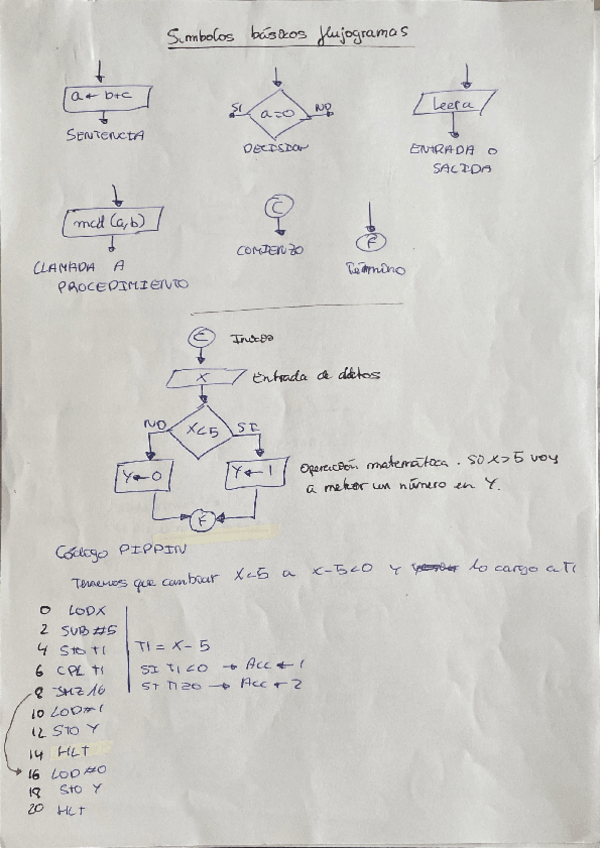 Simbolos básicos flujogramas
a ← b+c
SENTENCIA
SI a=0 NO
DECISION
Leer a
ENTRADA O
SALIDA
mcd (a,b)
LLAMADA A
PROCEDIMIENTO
C
COMIENZO
F
Término
C Inicio
X Entrada de datos
NO X<5 SI
Y←0
Y←1
Operación matemática. SO X>5 voy
a meter un número en Y.
F
Código PIPPIN
Tenemos que cambiar X<5 a X-5<0 y lo cargo a T1
0 LOD X
2 SUB #5
4 STO T1 T1 = X - 5
6 CPL T1 SI T1<0 → Acc ← 1
8 JMZ 16 SI T1≥0 → Acc ← 2
10 LOD #1
12 STO Y
14 HLT
16 LOD #0
18 STO Y
20 HLT